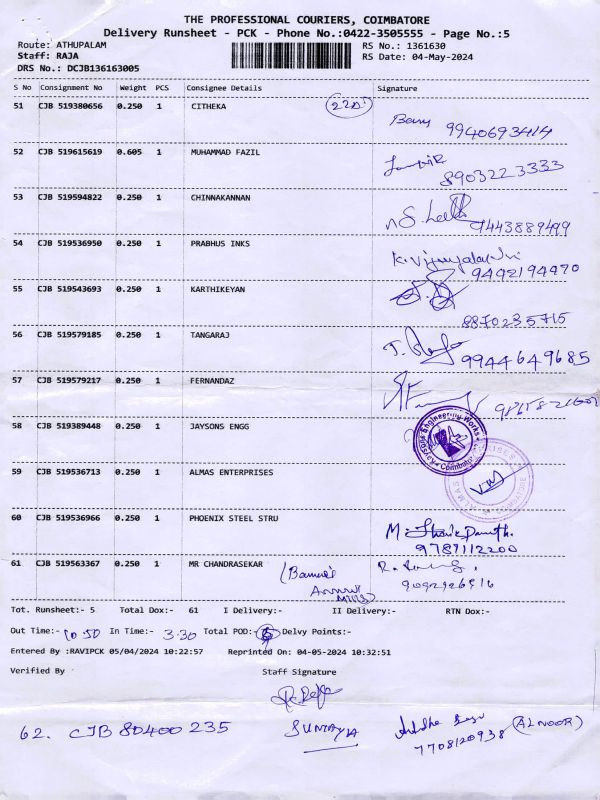 THE PROFESSIONAL COURIERS, COIMBATORE
Delivery Runsheet - PCK - Phone No.:0422-3505555 - Page No.:5
Route: ATHUPALAM RS No.: 1361630
Staff: RAJA RS Date: 04-May-2024
DRS No.: DCJB136163005
S No Consignment No Weight PCS Consignee Details Signature
51 CJB 519380656 0.250 1 CITHEKA 220
9940693414
52 CJB 519615619 0.605 1 MUHAMMAD FAZIL
8903223333
53 CJB 519594822 0.250 1 CHINNAKANNAN
9443889499
54 CJB 519536950 0.250 1 PRABHUS INKS K. Vijayalakshmi
9442194470
55 CJB 519543693 0.250 1 KARTHIKEYAN
8870235715
56 CJB 519579185 0.250 1 TANGARAJ
9944649685
57 CJB 519579217 0.250 1 FERNANDAZ
58 CJB 519389448 0.250 1 JAYSONS ENGG
Jaysons Engineering Works Coimbatore
59 CJB 519536713 0.250 1 ALMAS ENTERPRISES
ALMAS ENTERPRISES COIMBATORE
60 CJB 519536966 0.250 1 PHOENIX STEEL STRU
9787112200
61 CJB 519563367 0.250 1 MR CHANDRASEKAR
9092926516
Tot. Runsheet:- 5 Total Dox:- 61 I Delivery:- II Delivery:- RTN Dox:-
Out Time:- 10 50 In Time:- 3.30 Total POD:- Delvy Points:-
Entered By :RAVIPCK 05/04/2024 10:22:57 Reprinted On: 04-05-2024 10:32:51
Verified By Staff Signature
62. CJB 80400 235 SUMAYA (ALNOOR)
7708120938